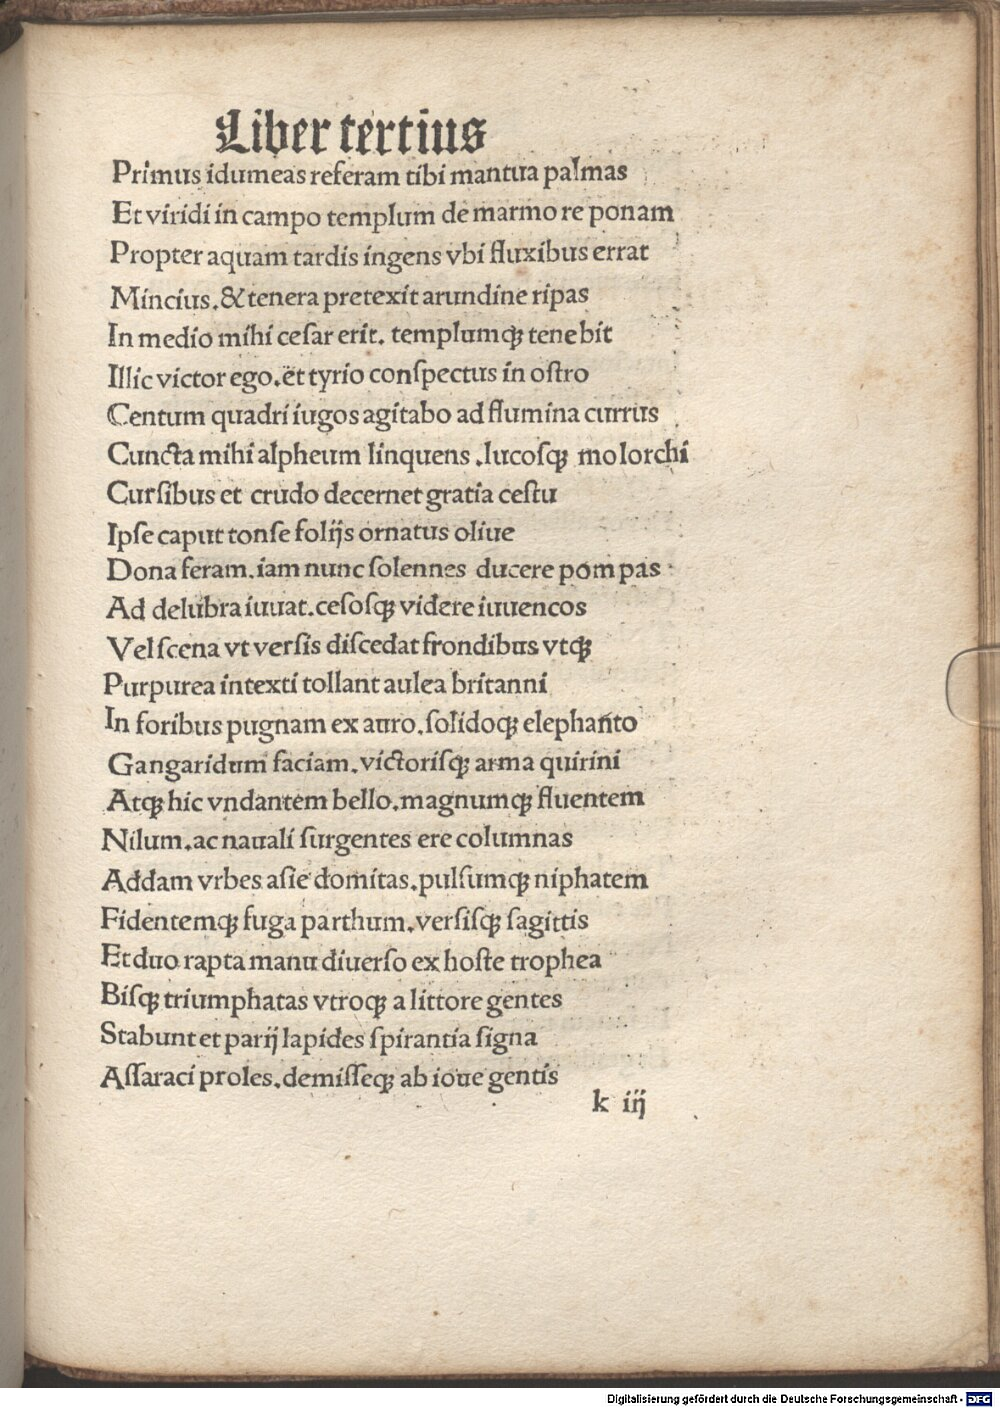 Liber tertius
Primus idumeas referam tibi mantua palmas
Et viridi in campo templum de marmore ponam
Propter aquam tardis ingens vbi fluxibus errat
Mincius.&tenera pretexit arundine ripas
In medio mihi ceſar erit. templumqꝫ tenebit
Illic victor ego.et tyrio conſpectus in oſtro
Centum quadriiugos agitabo ad flumina currus
Cuncta mihi alpheum linquens .lucoſqꝫ molorchi
Curſibus et crudo decernet gratia ceſtu
Ipſe caput tonſe folijs ornatus oliue
Dona feram.iam nunc ſolennes ducere pompas
Ad delubra iuuat.ceſoſqꝫ videre iuuencos
Vel ſcena vt verſis diſcedat frondibus vtqꝫ
Purpurea intexti tollant aulea britanni
In foribus pugnam ex auro.ſolidoqꝫ elephanto
Gangaridum faciam.victoriſqꝫ arma quirini
Atqꝫ hic vndantem bello.magnumqꝫ fluentem
Nilum.ac nauali ſurgentes ere columnas
Addam vrbes aſie domitas.pulſumqꝫ niphatem
Fidentemqꝫ fuga parthum.verſiſqꝫ ſagittis
Et duo rapta manu diuerſo ex hoſte trophea
Biſqꝫ triumphatas vtroqꝫ a littore gentes
Stabunt et parij lapides ſpirantia ſigna
Aſſaraci proles.demiſſeqꝫ ab ioue gentis
k iij
Digitalisierung gefördert durch die Deutsche Forschungsgemeinschaft - DFG